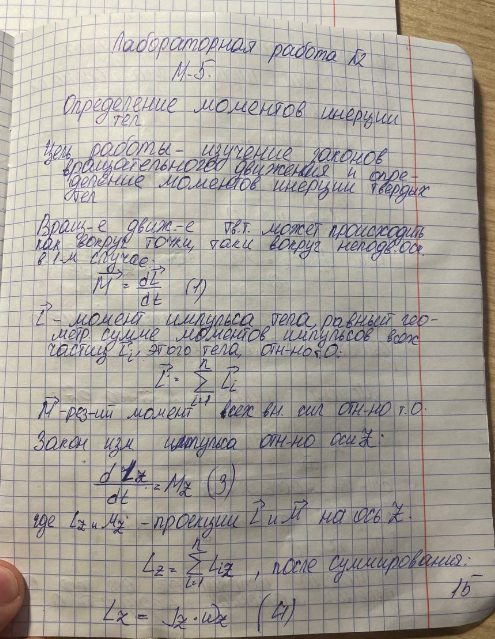 Лабораторная работа №2
М-5.
Определение моментов инерции
тел
Цель работы - изучение законов
вращательного движения и опре-
деление моментов инерции твердых
тел
Вращ-е движ-е тв.т. может происходить
как вокруг точки, так и вокруг неподв. оси.
в 1-м случае:
M⃗ = dL⃗/dt (1)
L⃗ - момент импульса тела, равный гео-
метр. сумме моментов импульсов всех
частиц L⃗i, этого тела отн-но т.О:
L⃗ = ∑ⁿᵢ₌₁ L⃗i
M⃗ - рез-ий момент всех вн. сил отн-но т.О.
Закон изм импульса отн-но оси Z:
dLz/dt = Mz (3)
где Lz и Mz - проекции L⃗ и M⃗ на ось Z.
Lz = ∑ⁿᵢ₌₁ Liz, после суммирования:
Lz = Jz · ωz (4)
15